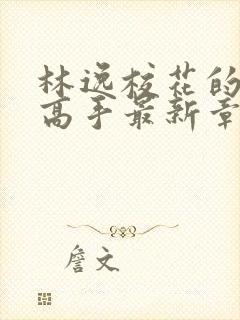 林逸校花的
高手最新章
詹文